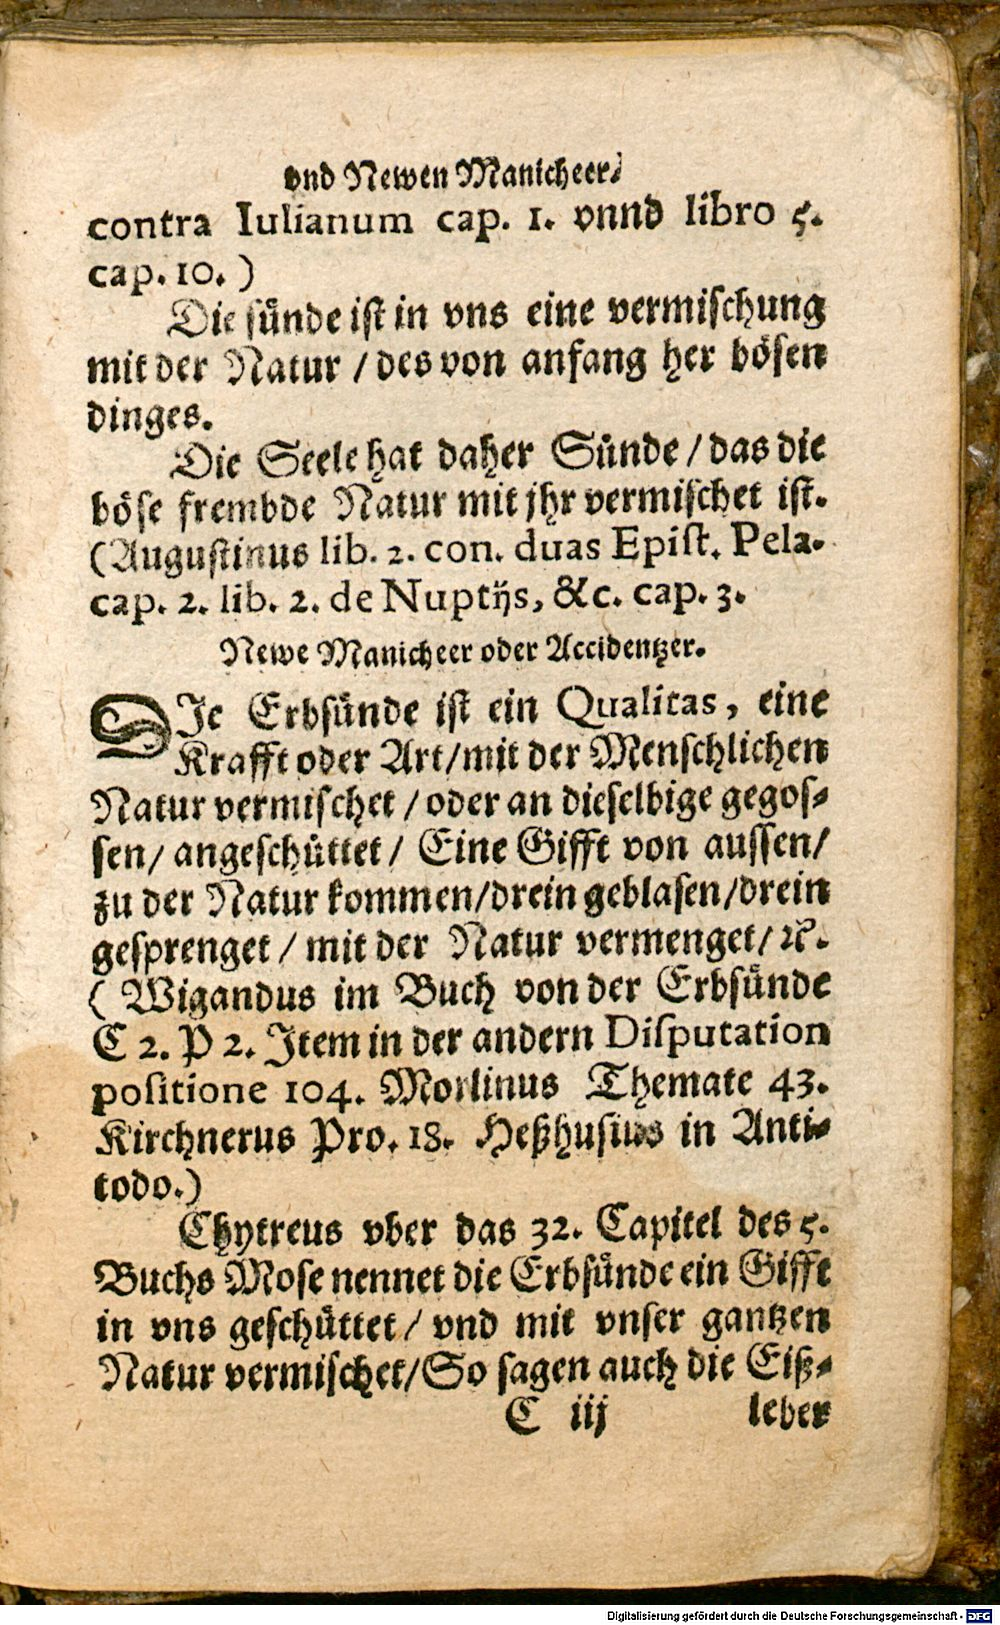 vnd Newen Manicheer.
contra Iulianum cap. 1. vnnd libro 5.
cap. 10. )
Die sünde ist in vns eine vermischung
mit der Natur / des von anfang her bösen
dinges.
Die Seele hat daher Sünde / das die
böse frembde Natur mit jhr vermischet ist.
(Augustinus lib. 2. con. duas Epist. Pela-
cap. 2. lib. 2. de Nuptijs, &c. cap. 3.
Newe Manicheer oder Accidentzer.
DIe Erbsünde ist ein Qualitas, eine
Krafft oder Art/mit der Menschlichen
Natur vermischet / oder an dieselbige gegos-
sen/ angeschüttet / Eine Gifft von aussen/
zu der Natur kommen/drein geblasen/drein
gesprenget / mit der Natur vermenget/ ꝛc.
( Wigandus im Buch von der Erbsünde
C 2. P 2. Item in der andern Disputation
positione 104. Morlinus Themate 43.
Kirchnerus Pro. 18. Heßhusius in Anti-
todo.)
Chytreus vber das 32. Capitel des 5.
Buchs Mose nennet die Erbsünde ein Gifft
in vns geschüttet / vnd mit vnser gantzen
Natur vermischet/So sagen auch die Eiß-
C iij leber
Digitalisierung gefördert durch die Deutsche Forschungsgemeinschaft - DFG